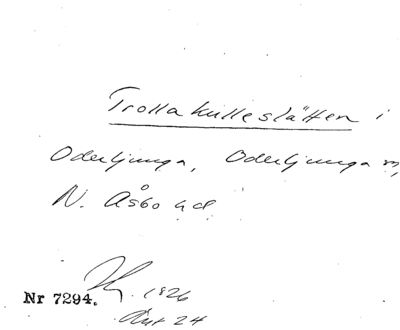 Trollakulleslätten i
Oderljunga, Oderljunga sn,
N. Åsbo hd
Nr 7294.
1926
24